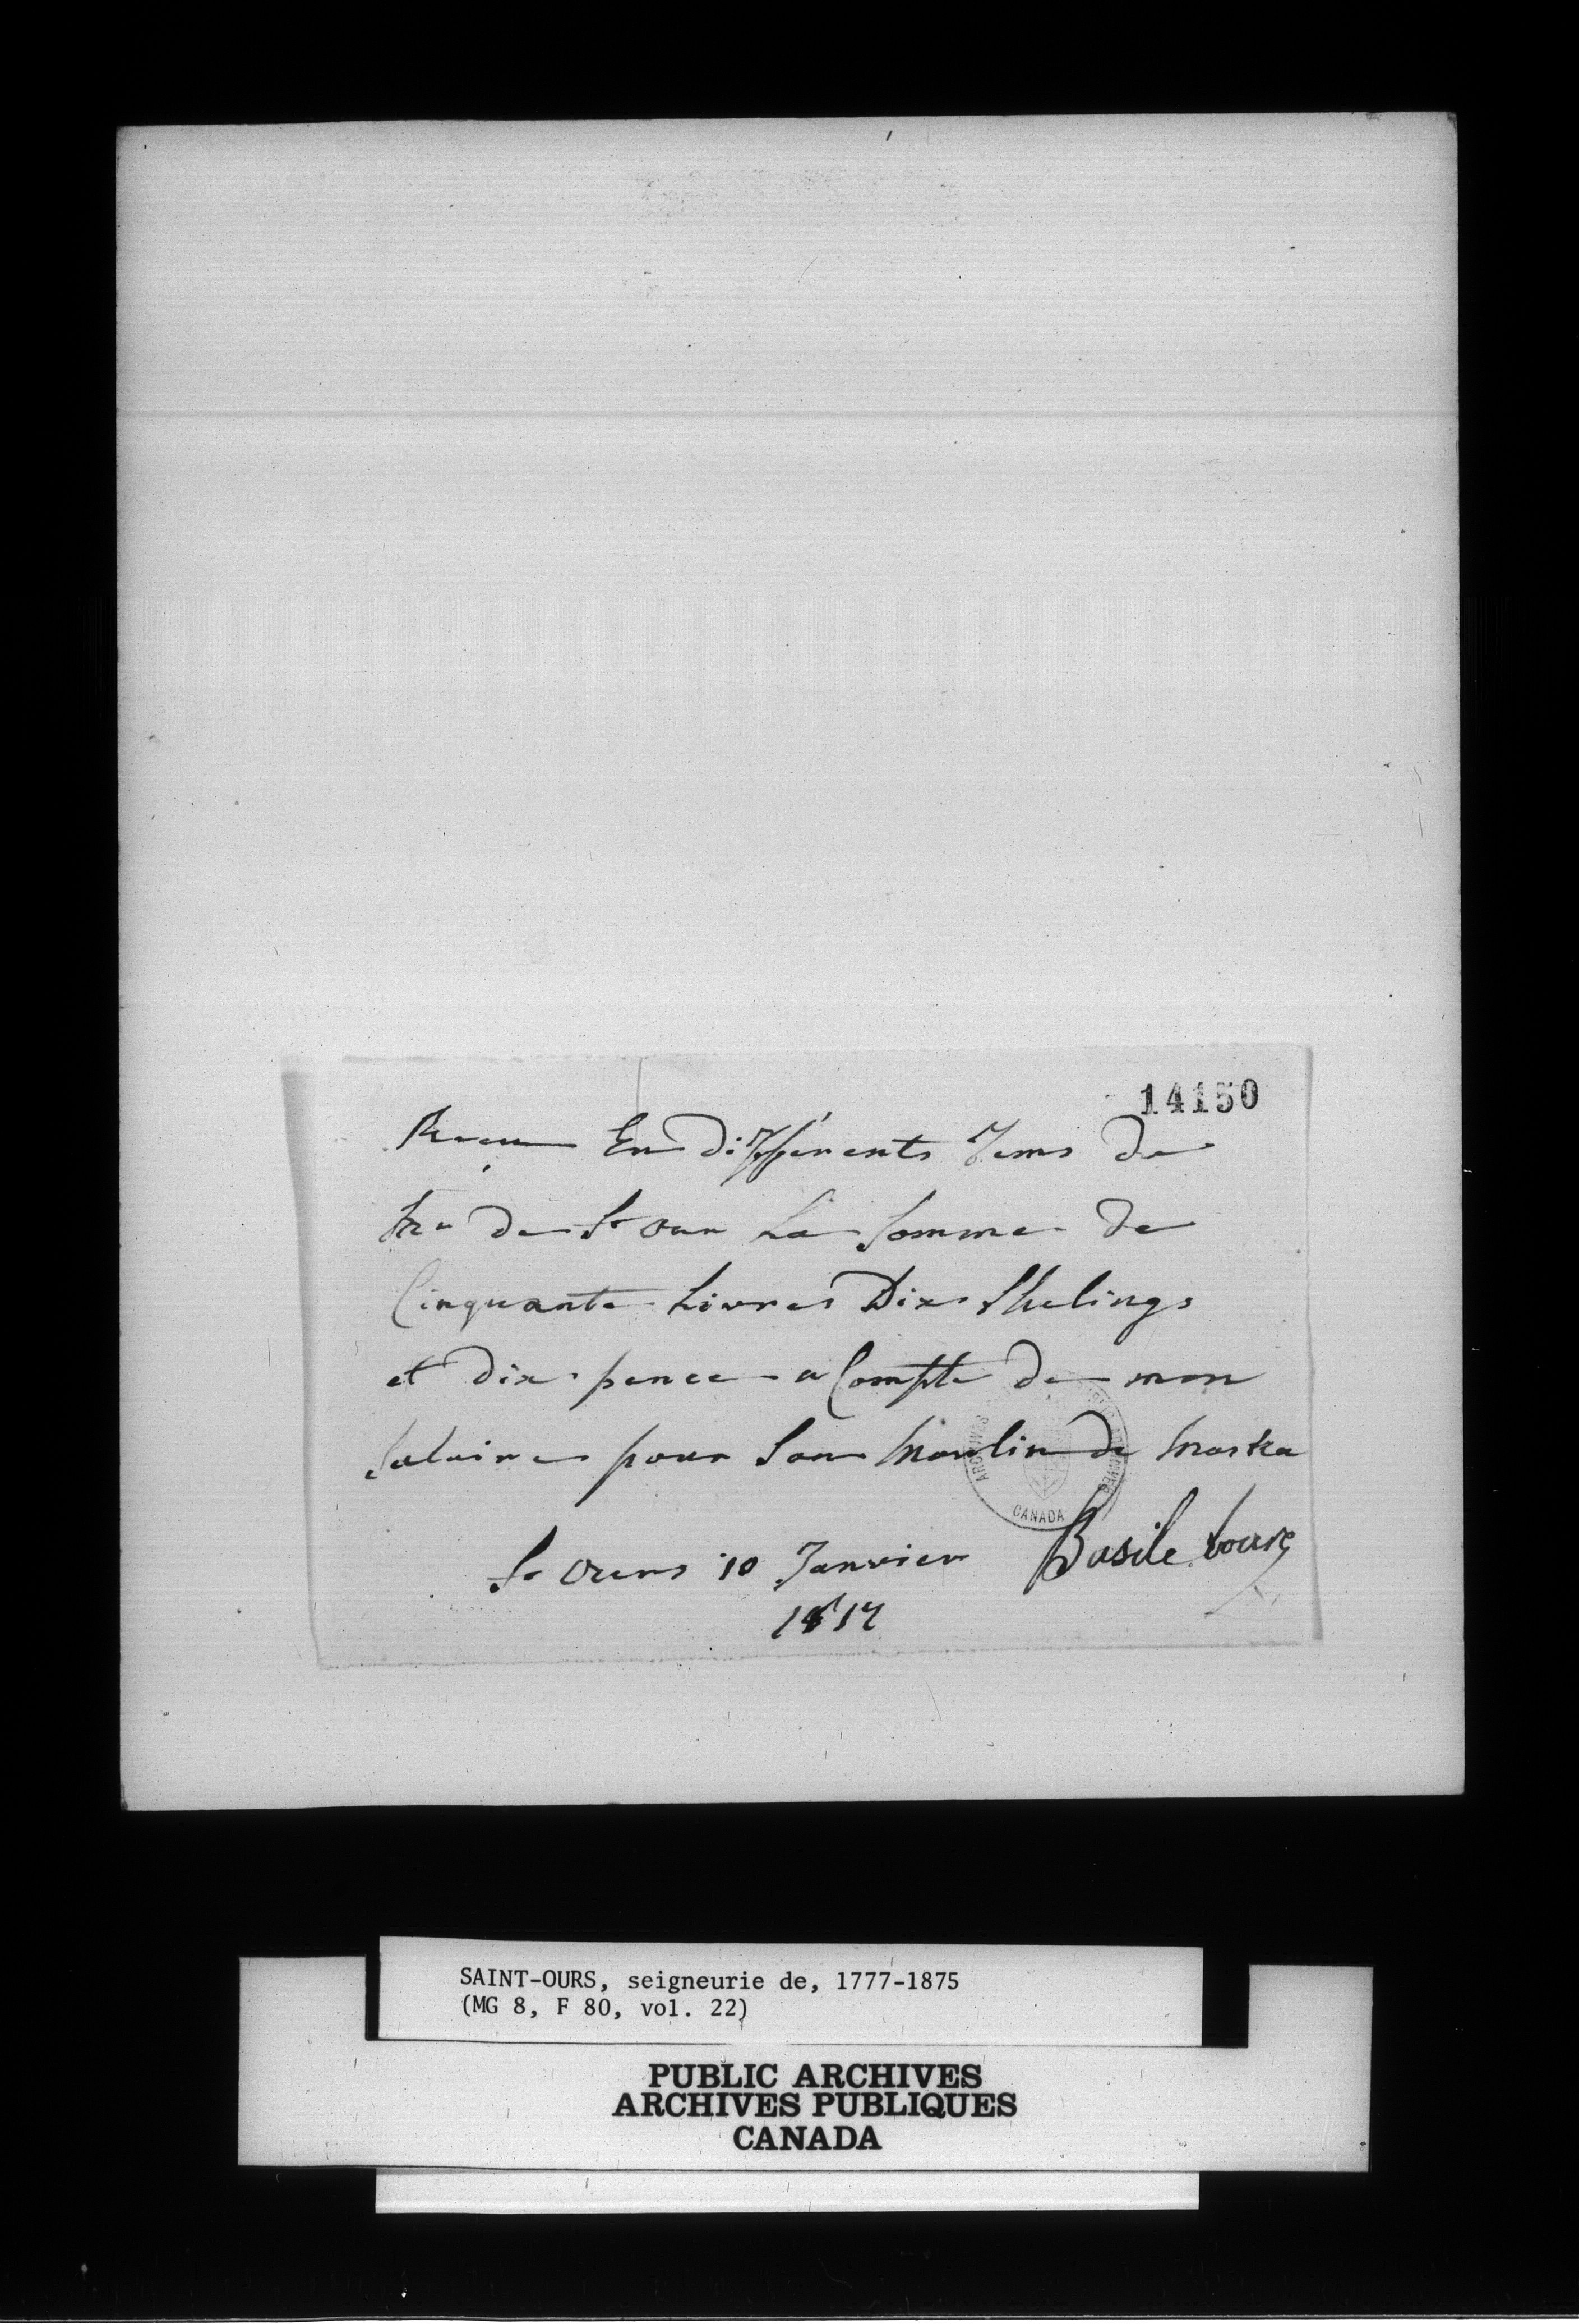 14150
Reçu En différents Tems de
Mr de St Our La Somme de
Cinquante Livres Dix Shelings
et dix pence a Compte de mon
Salaire pour Son Moulin de Maska
St Ours 10 Janvier Basile bourg
1817
CANADA
SAINT-OURS, seigneurie de, 1777-1875
(MG 8, F 80, vol. 22)
PUBLIC ARCHIVES
ARCHIVES PUBLIQUES
CANADA